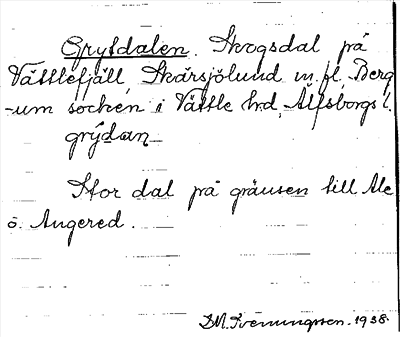 Grytdalen. Skogsdal på
Vättlefjäll, Skårsjölund m. fl. Berg
-um socken i Vättle hd, Älfsborgs l.
grýdan
Stor dal på gränsen till Ale
o. Angered.
D.M. Svenungsson. 1938.